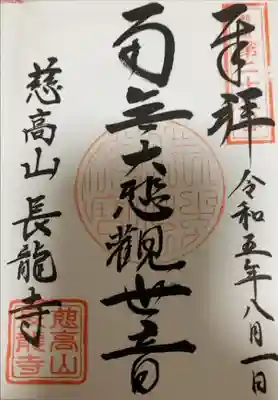 奉拝
令和五年八月一日
南無大悲観世音
慈高山 長龍寺
慈高山
長龍寺